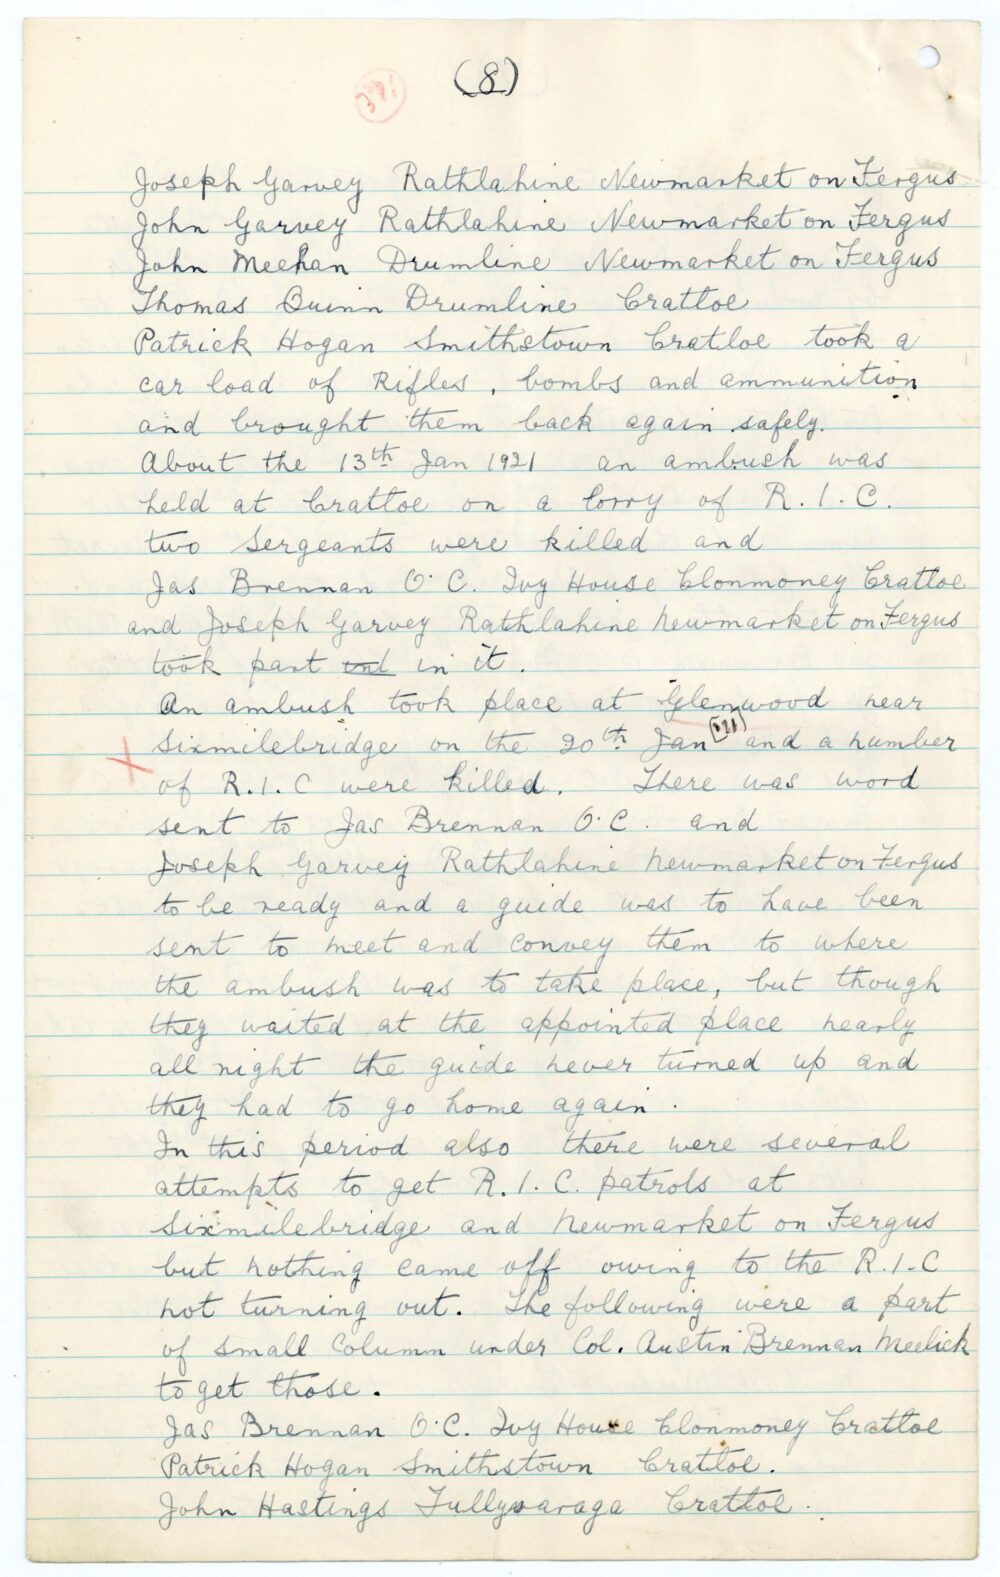 (8)
Joseph Garvey Rathlahine Newmarket on Fergus
John Garvey Rathlahine Newmarket on Fergus
John Meehan Drumline Newmarket on Fergus
Thomas Quinn Drumline Cratloe
Patrick Hogan Smithstown Cratloe took a
car load of Rifles, bombs and ammunition
and brought them back again safely.
About the 13th Jan 1921 an ambush was
held at Cratloe on a lorry of R.I.C.
two Sergeants were killed and
Jas Brennan O.C. Ivy House Clonmoney Cratloe
and Joseph Garvey Rathlahine Newmarket on Fergus
took part in it.
An ambush took place at Glenwood near
Sixmilebridge on the 20th Jan (21) and a number
of R.I.C were killed. There was word
sent to Jas Brennan O.C. and
Joseph Garvey Rathlahine Newmarket on Fergus
to be ready and a guide was to have been
sent to meet and convey them to where
the ambush was to take place, but though
they waited at the appointed place nearly
all night the guide never turned up and
they had to go home again.
In this period also there were several
attempts to get R.I.C. patrols at
Sixmilebridge and Newmarket on Fergus
but nothing came off owing to the R.I.C
not turning out. The following were a part
of small Column under Col. Austin Brennan Meelick
to get those.
Jas Brennan O.C. Ivy House Clonmoney Cratloe
Patrick Hogan Smithstown Cratloe.
John Hastings Tullyvaraga Cratloe.